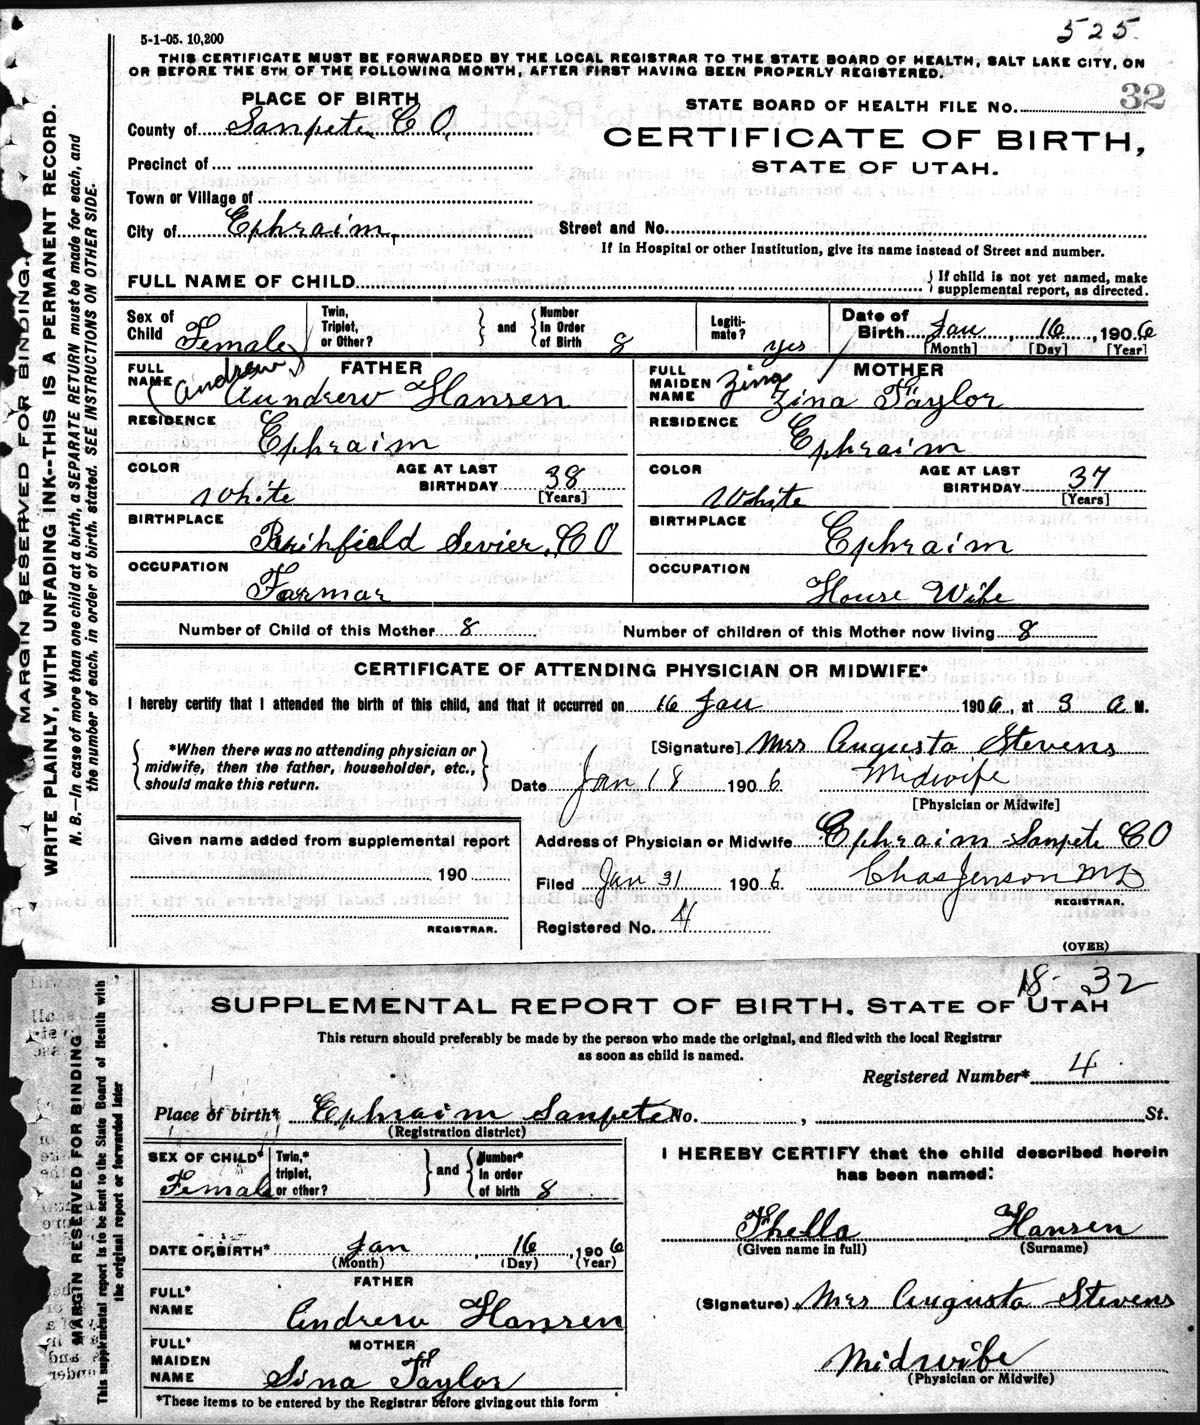 525
5-1-05. 10,200
THIS CERTIFICATE MUST BE FORWARDED BY THE LOCAL REGISTRAR TO THE STATE BOARD OF HEALTH, SALT LAKE CITY, ON
OR BEFORE THE 5TH OF THE FOLLOWING MONTH, AFTER FIRST HAVING BEEN PROPERLY REGISTERED.
PLACE OF BIRTH
STATE BOARD OF HEALTH FILE No. 32
County of Sanpete CO,
CERTIFICATE OF BIRTH,
STATE OF UTAH.
Precinct of
Town or Village of
City of Ephraim, Street and No.
If in Hospital or other Institution, give its name instead of Street and number.
FULL NAME OF CHILD { If child is not yet named, make supplemental report, as directed.
Sex of Child Female Twin, Triplet, or Other? } and { Number In Order of Birth 8 Legiti-mate? yes Date of Birth Jan, 16, 1906
[Month] [Day] [Year]
FULL NAME FATHER (Andrew) Aundrew Hansen
FULL MAIDEN NAME MOTHER Zina Zina Taylor
RESIDENCE Ephraim
RESIDENCE Ephraim
COLOR White AGE AT LAST BIRTHDAY 38 [Years]
COLOR White AGE AT LAST BIRTHDAY 37 [Years]
BIRTHPLACE Sevier, CO
BIRTHPLACE Ephraim
OCCUPATION Farmar
OCCUPATION House Wife
Number of Child of this Mother 8 Number of children of this Mother now living 8
CERTIFICATE OF ATTENDING PHYSICIAN OR MIDWIFE*
I hereby certify that I attended the birth of this child, and that it occurred on 16 Jan 1906, at 3 a M.
{ *When there was no attending physician or midwife, then the father, householder, etc., should make this return. }
[Signature] Mrs Augusta Stevens
Date Jan 18 1906 Midwife
[Physician or Midwife]
Given name added from supplemental report
190
REGISTRAR.
Address of Physician or Midwife Ephraim Sanpete CO
Filed Jan 31 1906 Chas Jenson MD
REGISTRAR.
Registered No. 4
(OVER)
MARGIN RESERVED FOR BINDING.
WRITE PLAINLY, WITH UNFADING INK--THIS IS A PERMANENT RECORD.
N. B.—In case of more than one child at a birth, a SEPARATE RETURN must be made for each, and
the number of each, in order of birth. stated. SEE INSTRUCTIONS ON OTHER SIDE.
18- 32
SUPPLEMENTAL REPORT OF BIRTH, STATE OF UTAH
This return should preferably be made by the person who made the original, and filed with the local Registrar
as soon as child is named.
Registered Number* 4
Place of birth* Ephraim Sanpete No. , St.
(Registration district)
SEX OF CHILD* Female Twin,* triplet, or other? } and { Number* In order of birth 8
DATE OF BIRTH* Jan, 16, 1906
(Month) (Day) (Year)
FULL* NAME FATHER Andrew Hansen
FULL* MAIDEN NAME MOTHER Sina Taylor
*These items to be entered by the Registrar before giving out this form
I HEREBY CERTIFY that the child described herein
has been named:
Thella Hansen
(Given name in full) (Surname)
(Signature) Mrs Augusta Stevens
Midwife
(Physician or Midwife)
MARGIN RESERVED FOR BINDING
This supplemental report is to be sent to the State Board of Health with
the original report or forwarded later